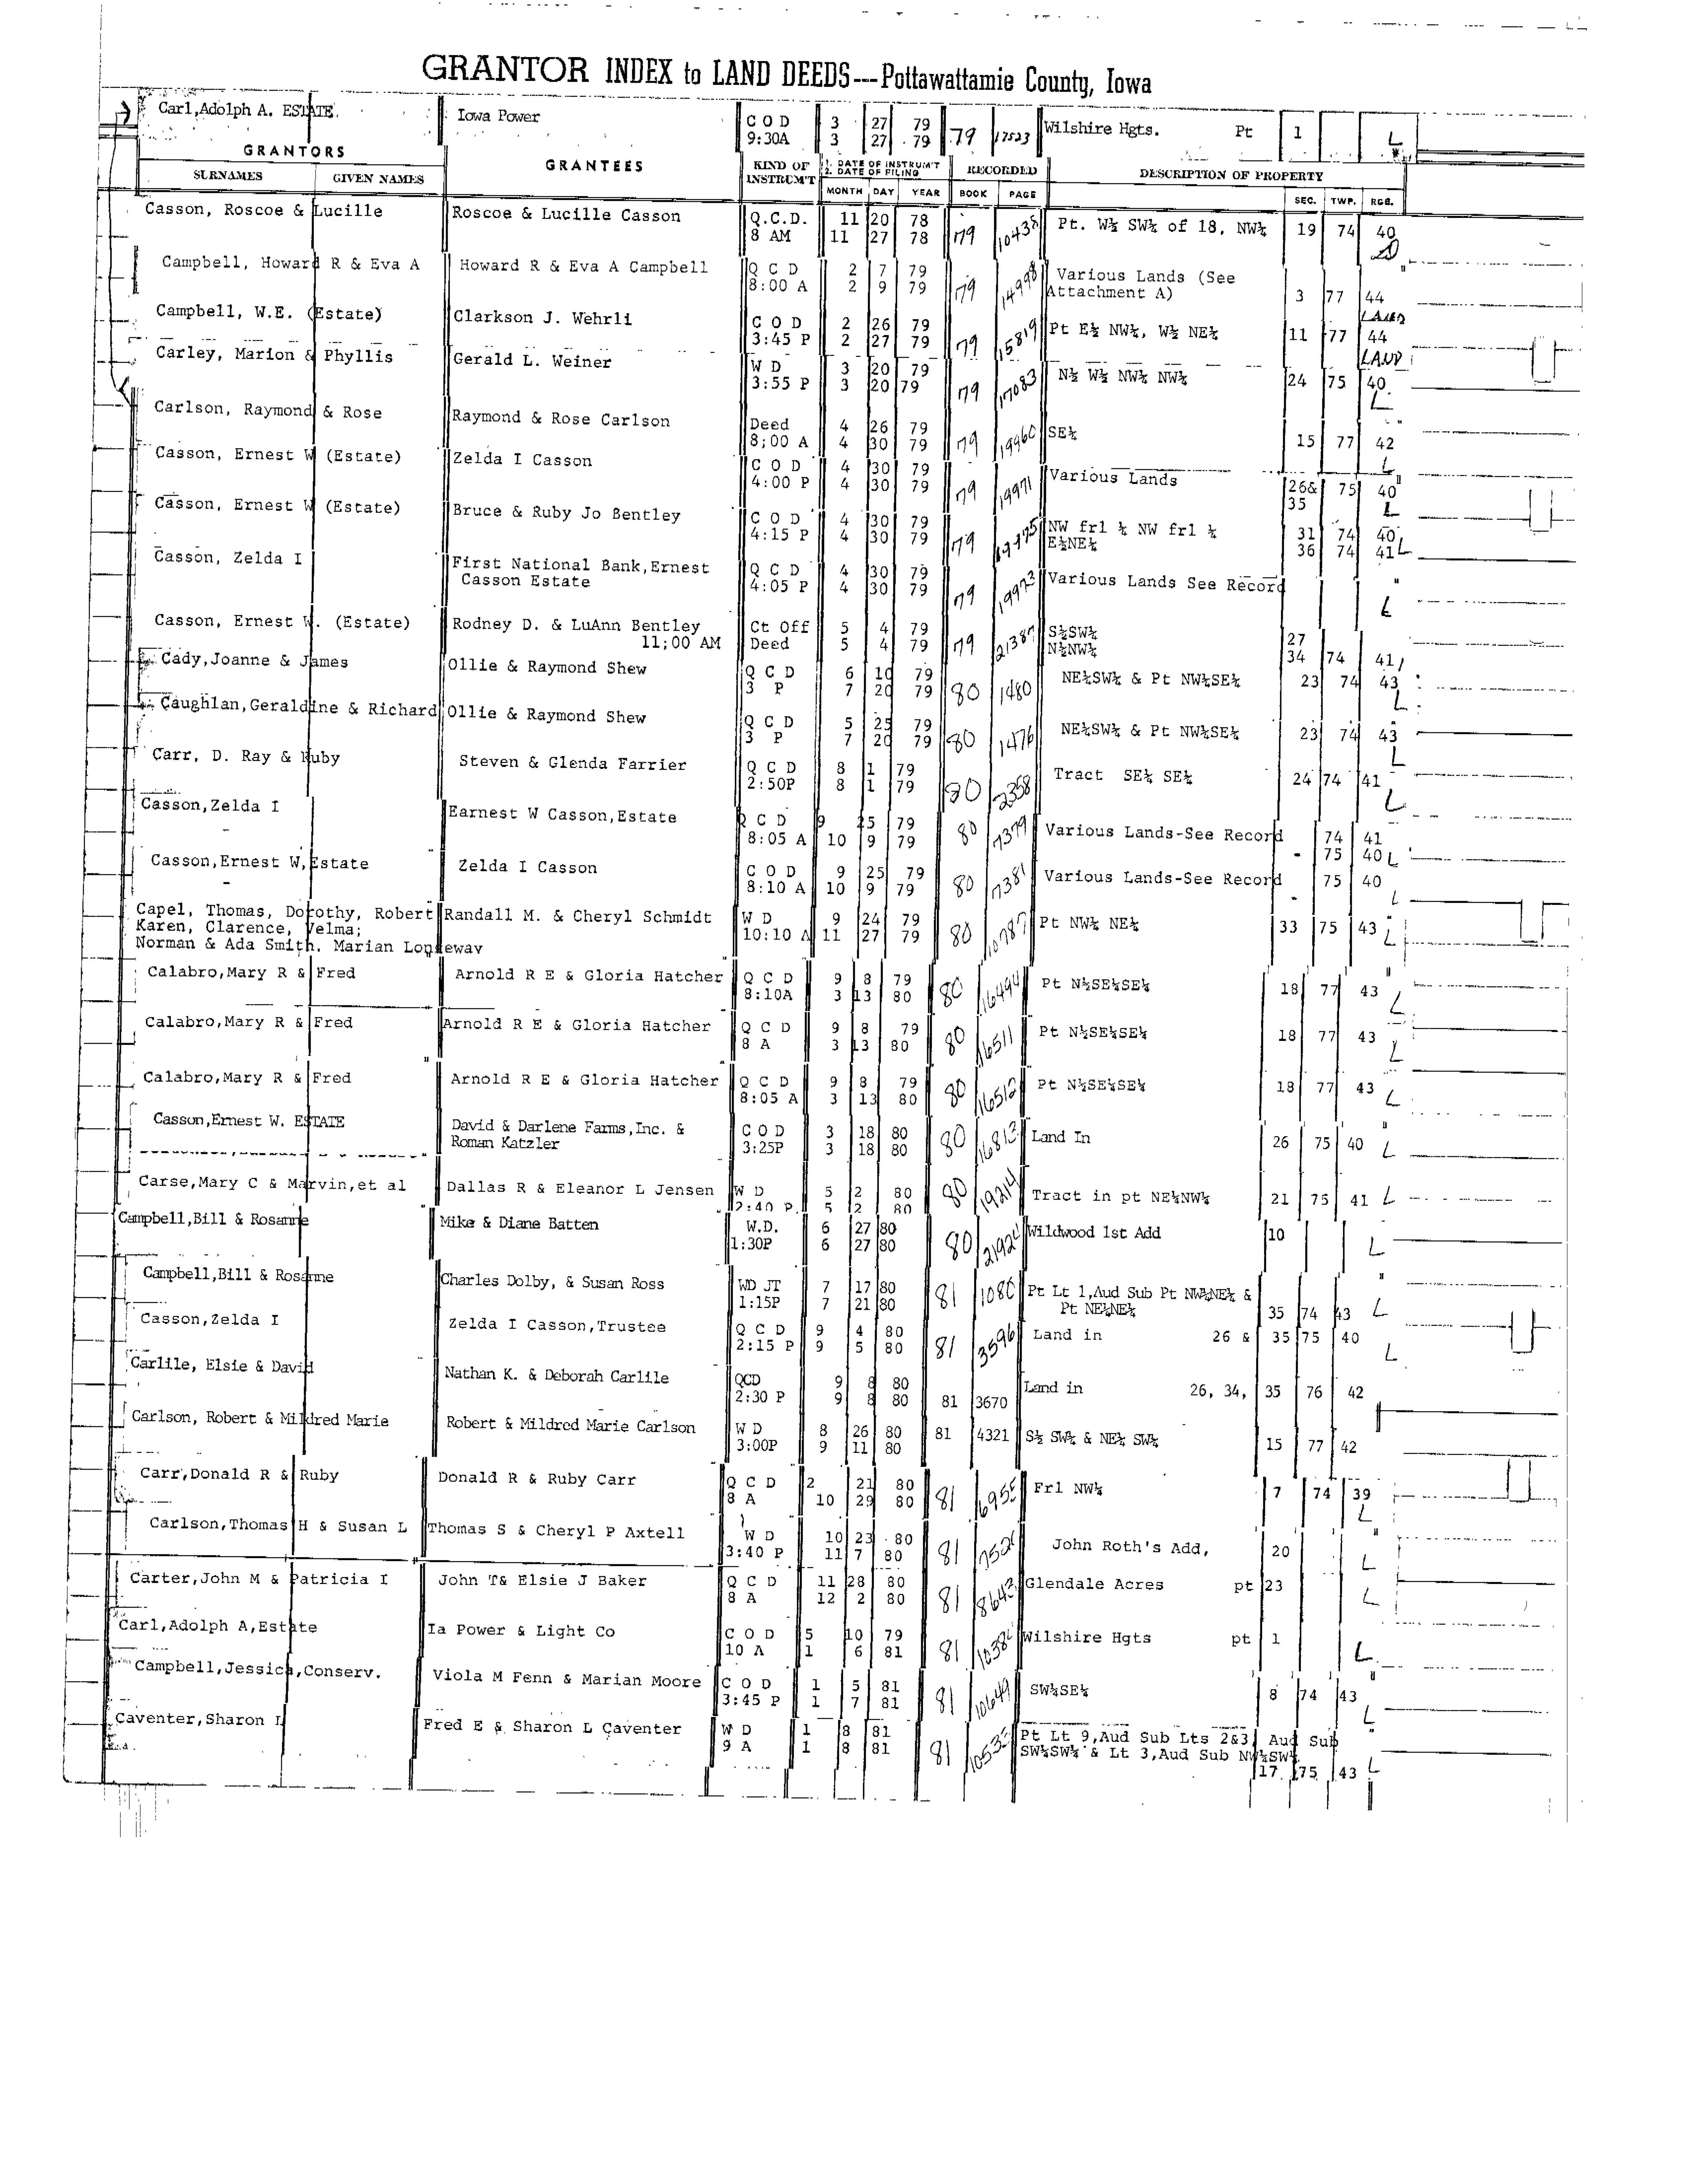 GRANTOR INDEX to LAND DEEDS---Pottawattamie County, Iowa
Carl,Adolph A. ESTATE. Iowa Power C O D 3 27 79 79 17523 Wilshire Hgts. Pt 1 L
9:30A 3 27 79
GRANTORS GRANTEES KIND OF INSTRUM'T 1. DATE OF INSTRUM'T 2. DATE OF FILING RECORDED DESCRIPTION OF PROPERTY
SURNAMES GIVEN NAMES MONTH DAY YEAR BOOK PAGE SEC. TWP. RGE.
Casson, Roscoe & Lucille Roscoe & Lucille Casson Q.C.D. 11 20 78 79 10435 Pt. W½ SW¼ of 18, NW¼ 19 74 40
8 AM 11 27 78
Campbell, Howard R & Eva A Howard R & Eva A Campbell Q C D 2 7 79 79 14998 Various Lands (See
8:00 A 2 9 79 Attachment A) 3 77 44
LAND
Campbell, W.E. (Estate) Clarkson J. Wehrli C O D 2 26 79 79 15819 Pt E½ NW¼, W½ NE¼ 11 77 44
3:45 P 2 27 79 LAND
Carley, Marion & Phyllis Gerald L. Weiner W D 3 20 79 79 17083 N½ W½ NW¼ NW¼ 24 75 40 L
3:55 P 3 20 79
Carlson, Raymond & Rose Raymond & Rose Carlson Deed 4 26 79 79 19960 SE¼ 15 77 42 L
8;00 A 4 30 79
Casson, Ernest W (Estate) Zelda I Casson C O D 4 30 79 79 19971 Various Lands 26& 75 40 L
4:00 P 4 30 79 35
Casson, Ernest W (Estate) Bruce & Ruby Jo Bentley C O D 4 30 79 79 19975 NW frl ¼ NW frl ¼ 31 74 40
4:15 P 4 30 79 E½NE¼ 36 74 41 L
Casson, Zelda I First National Bank,Ernest Q C D 4 30 79 79 19973 Various Lands See Record L
Casson Estate 4:05 P 4 30 79
Casson, Ernest W. (Estate) Rodney D. & LuAnn Bentley Ct Off 5 4 79 79 21387 S½SW¼ 27
11;00 AM Deed 5 4 79 N½NW¼ 34 74 41
Cady,Joanne & James Ollie & Raymond Shew Q C D 6 10 79 80 1480 NE¼SW¼ & Pt NW¼SE¼ 23 74 43 L
3 P 7 20 79
Caughlan,Geraldine & Richard Ollie & Raymond Shew Q C D 5 25 79 80 1476 NE¼SW¼ & Pt NW¼SE¼ 23 74 43 L
3 P 7 20 79
Carr, D. Ray & Ruby Steven & Glenda Farrier Q C D 8 1 79 80 2358 Tract SE¼ SE¼ 24 74 41 L
2:50P 8 1 79
Casson,Zelda I Earnest W Casson,Estate Q C D 9 25 79 80 7379 Various Lands-See Record 74 41
8:05 A 10 9 79 75 40 L
Casson,Ernest W,Estate Zelda I Casson C O D 9 25 79 80 7381 Various Lands-See Record 75 40 L
8:10 A 10 9 79
Capel, Thomas, Dorothy, Robert Randall M. & Cheryl Schmidt W D 9 24 79 80 10787 Pt NW¼ NE¼ 33 75 43 L
Karen, Clarence, Velma; 10:10 A 11 27 79
Norman & Ada Smith, Marian Longeway
Calabro,Mary R & Fred Arnold R E & Gloria Hatcher Q C D 9 8 79 80 16494 Pt N½SE¼SE¼ 18 77 43 L
8:10A 3 13 80
Calabro,Mary R & Fred Arnold R E & Gloria Hatcher Q C D 9 8 79 80 16511 Pt N½SE¼SE¼ 18 77 43 L
8 A 3 13 80
Calabro,Mary R & Fred Arnold R E & Gloria Hatcher Q C D 9 8 79 80 16512 Pt N½SE¼SE¼ 18 77 43 L
8:05 A 3 13 80
Casson,Ernest W. ESTATE David & Darlene Farms,Inc. & C O D 3 18 80 80 16813 Land In 26 75 40 L
Roman Katzler 3:25P 3 18 80
Carse,Mary C & Marvin,et al Dallas R & Eleanor L Jensen W D 5 2 80 80 19214 Tract in pt NE¼NW¼ 21 75 41 L
2:40 P. 5 2 80
Campbell,Bill & Rosanne Mike & Diane Batten W.D. 6 27 80 80 Wildwood 1st Add 10 L
1:30P 6 27 80
Campbell,Bill & Rosanne Charles Dolby, & Susan Ross WD JT 7 17 80 81 1080 Pt Lt 1,Aud Sub Pt NW¼NE¼ &
1:15P 7 21 80 Pt NE¼NE¼ 35 74 43 L
Casson,Zelda I Zelda I Casson,Trustee Q C D 9 4 80 81 3596 Land in 26 & 35 75 40 L
2:15 P 9 5 80
Carlile, Elsie & David Nathan K. & Deborah Carlile QCD 9 8 80 Land in 26, 34, 35 76 42
2:30 P 9 8 80 81 3670
Carlson, Robert & Mildred Marie Robert & Mildred Marie Carlson W D 8 26 80 81 4321 S½ SW¼ & NE¼ SW¼ 15 77 42
3:00P 9 11 80
Carr,Donald R & Ruby Donald R & Ruby Carr Q C D 2 21 80 81 6955 Frl NW¼ 7 74 39 L
8 A 10 29 80
Carlson,Thomas H & Susan L Thomas S & Cheryl P Axtell W D 10 23 80 81 John Roth's Add, 20 L
3:40 P 11 7 80
Carter,John M & Patricia I John T& Elsie J Baker Q C D 11 28 80 81 8643 Glendale Acres pt 23 L
8 A 12 2 80
Carl,Adolph A,Estate Ia Power & Light Co C O D 5 10 79 81 Wilshire Hgts pt 1 L
10 A 1 6 81
Campbell,Jessica,Conserv. Viola M Fenn & Marian Moore C O D 1 5 81 81 10649 SW¼SE¼ 8 74 43 L
3:45 P 1 7 81
Caventer,Sharon L Fred E & Sharon L Caventer W D 1 8 81 81 Pt Lt 9,Aud Sub Lts 2&3, Aud Sub
9 A 1 8 81 SW¼SW¼ & Lt 3,Aud Sub NW¼SW¼
17 75 43 L